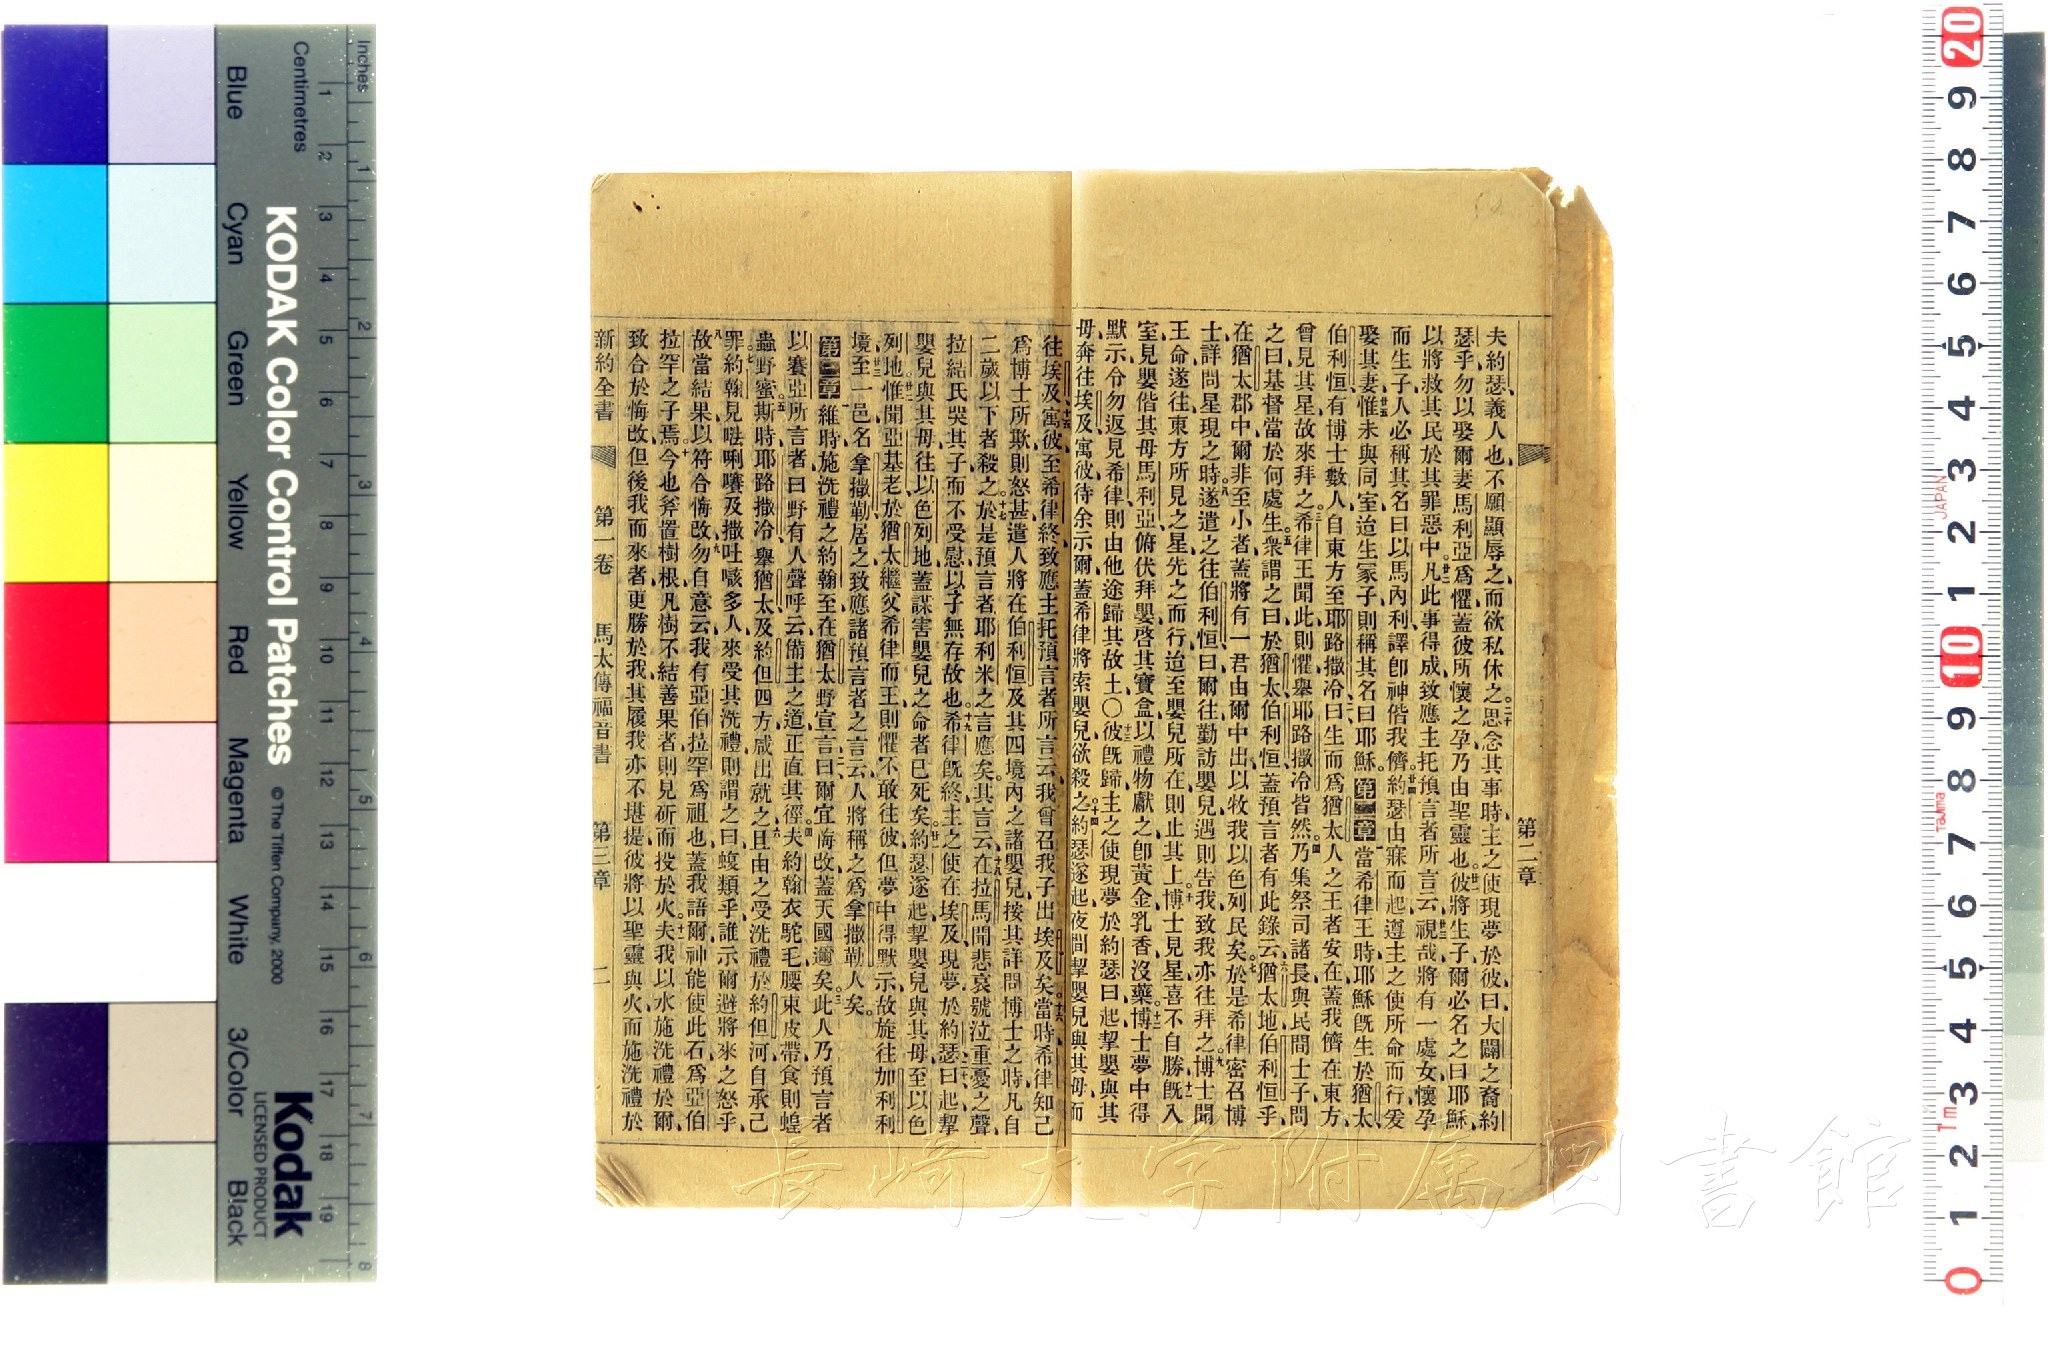 第二章
夫約瑟義人也不願顯辱之而欲私休之。二十思念其事時主之使現夢於彼曰大闢之裔約
瑟乎勿以娶爾妻馬利亞爲懼蓋彼所懷之孕乃由聖靈也。廿一彼將生子爾必名之曰耶穌
以將救其民於其罪惡中。廿二凡此事得成致應主托預言者所言云廿三視哉將有一處女懷孕
而生子人必稱其名曰以馬內利譯卽神偕我儕。廿四約瑟由寐而起遵主之使所命而行爰
娶其妻廿五惟未與同室迨生冡子則稱其名曰耶穌第二章一當希律王時耶穌旣生於猶太
伯利恒有博士數人自東方至耶路撒冷曰二生而爲猶太人之王者安在蓋我儕在東方
曾見其星故來拜之。三希律王聞此則懼舉耶路撒冷皆然。四乃集祭司諸長與民間士子問
之曰基督當於何處生。五衆謂之曰於猶太伯利恒蓋預言者有此錄云六猶太地伯利恒乎
在猶太郡中爾非至小者蓋將有一君由爾中出以牧我以色列民矣。七於是希律密召博
士詳問星現之時。八遂遣之往伯利恒曰爾往勤訪嬰兒遇則告我致我亦往拜之。九博士聞
王命遂往東方所見之星先之而行迨至嬰兒所在則止其上。十博士見星喜不自勝十一旣入
室見嬰偕其母馬利亞俯伏拜嬰啓其寶盒以禮物獻之卽黃金乳香沒藥。十二博士夢中得
默示令勿返見希律則由他途歸其故土〇十三彼旣歸主之使現夢於約瑟曰起挈嬰與其
母奔往埃及寓彼待余示爾蓋希律將索嬰兒欲殺之。十四約瑟遂起夜間挈嬰兒與其母而
往埃及十五寓彼至希律終致應主托預言者所言云我曾召我子出埃及矣。十六當時希律知己
爲博士所欺則怒甚遣人將在伯利恒及其四境內之諸嬰兒按其詳問博士之時凡自
二歲以下者殺之。十七於是預言者耶利米之言應矣。其言云十八在拉馬聞悲哀號泣重憂之聲
拉結氏哭其子而不受慰以子無存故也。十九希律旣終主之使在埃及現夢於約瑟曰二十起挈
嬰兒與其母往以色列地蓋謀害嬰兒之命者已死矣。廿一約瑟遂起挈嬰兒與其母至以色
列地廿二惟聞亞基老於猶太繼父希律而王則懼不敢往彼但夢中得默示故旋往加利利
境廿三至一邑名拿撒勒居之致應諸預言者之言云人將稱之爲拿撒勒人矣。
第三章一維時施洗禮之約翰至在猶太野宣言曰二爾宜悔改蓋天國邇矣。三此人乃預言者
以賽亞所言者曰野有人聲呼云備主之道正直其徑。四夫約翰衣駝毛腰束皮帶食則蝗
蟲野蜜。五斯時耶路撒冷舉猶太及約但四方咸出就之六且由之受洗禮於約但河自承己
罪。七約翰見𠵽唎㘔及撒吐㗒多人來受其洗禮則謂之曰蝮類乎誰示爾避將來之怒乎
八故當結果以符合悔改九勿自意云我有亞伯拉罕爲祖也蓋我語爾神能使此石爲亞伯
拉罕之子焉十今也斧置樹根凡樹不結善果者則見斫而投於火。十一夫我以水施洗禮於爾
致合於悔改但後我而來者更勝於我其履我亦不堪提彼將以聖靈與火而施洗禮於
新約全書 第一卷 馬太傳福音書 第三章 二
Inches
Centimetres
Blue Cyan Green Yellow Red Magenta White 3/Color Black
KODAK Color Control Patches © The Tiffen Company, 2000
Kodak
LICENSED PRODUCT
1 2 3 4 5 6 7 8 9 10 11 12 13 14 15 16 17 18 19
1 2 3 4 5 6 7 8
20 9 8 7 6 5 4 3 2 1 10 9 8 7 6 5 4 3 2 1 0
JAPAN
Tajima
Tm
長崎大学附属図書館